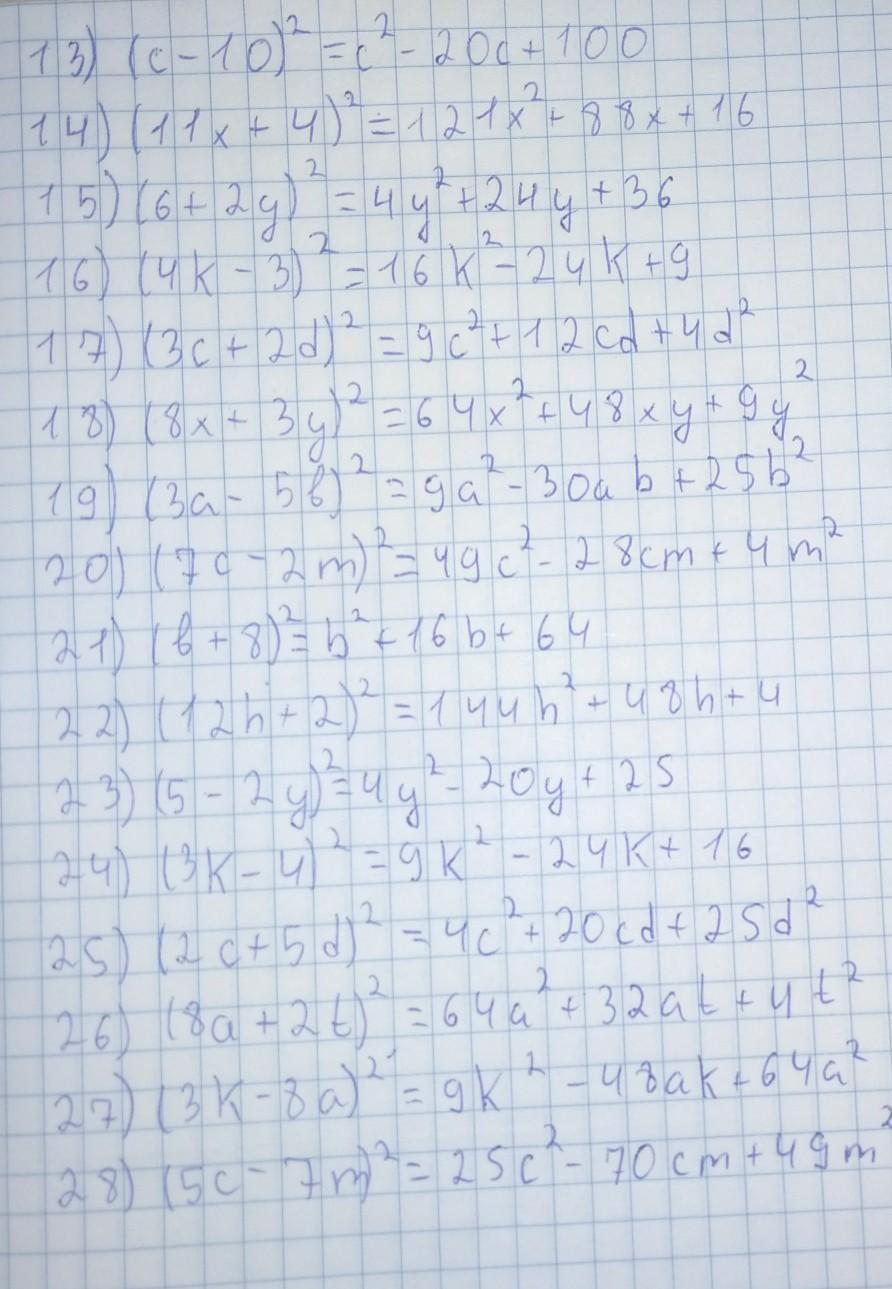 13) (c-10)² = c² - 20c + 100
14) (11x + 4)² = 121x² + 88x + 16
15) (6 + 2y)² = 4y² + 24y + 36
16) (4k - 3)² = 16k² - 24k + 9
17) (3c + 2d)² = 9c² + 12cd + 4d²
18) (8x + 3y)² = 64x² + 48xy + 9y²
19) (3a - 5b)² = 9a² - 30ab + 25b²
20) (7c - 2m)² = 49c² - 28cm + 4m²
21) (b + 8)² = b² + 16b + 64
22) (12h + 2)² = 144h² + 48h + 4
23) (5 - 2y)² = 4y² - 20y + 25
24) (3k - 4)² = 9k² - 24k + 16
25) (2c + 5d)² = 4c² + 20cd + 25d²
26) (8a + 2t)² = 64a² + 32at + 4t²
27) (3k - 8a)² = 9k² - 48ak + 64a²
28) (5c - 7m)² = 25c² - 70cm + 49m²